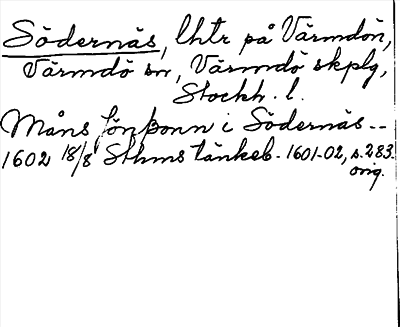 Södernäs, lhtr på Värmdön,
Värmdö sn, Värmdö skplg,
Stockh. l.
Måns Jönßonn i Södernäs --
1602 18/8 Sthms tänkeb. 1601-02, s. 283.
orig.